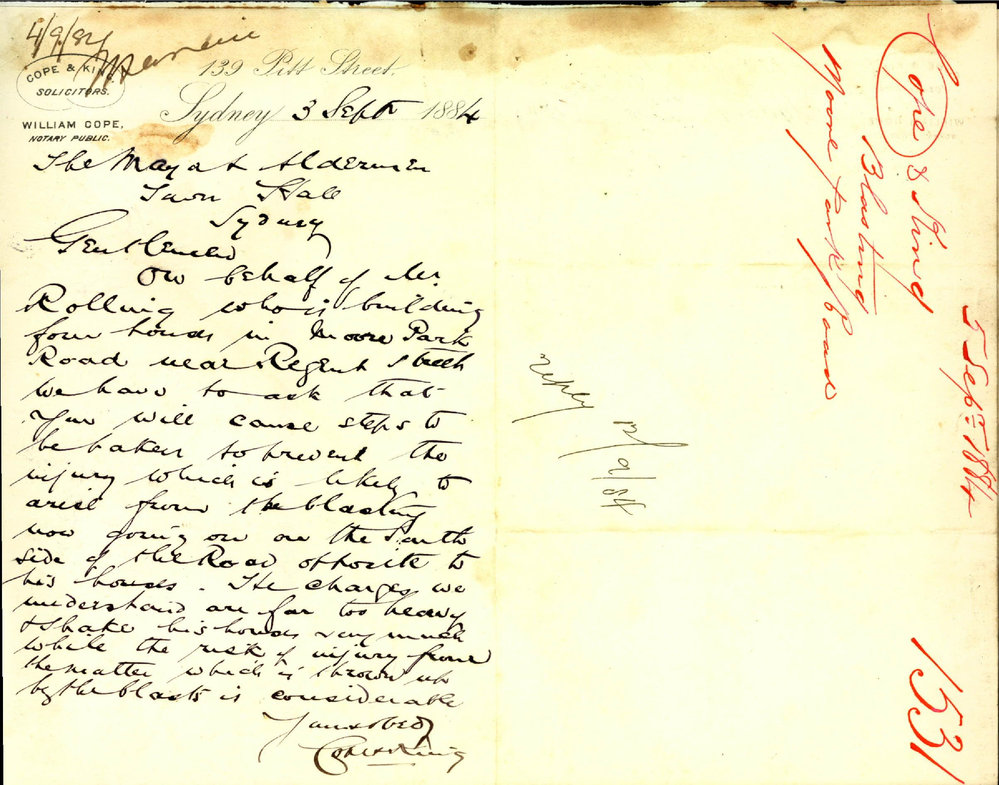 4/9/84
COPE & KING
SOLICITORS.
WILLIAM COPE,
NOTARY PUBLIC.
139 Pitt Street,
Sydney 3 Sept 1884
The Mayor & Aldermen
Town Hall
Sydney
Gentlemen
On behalf of Mr.
Rolling who is building
four houses in Moore Park
Road near Regent Street
we have to ask that
you will cause steps to
be taken to prevent the
injury which is likely to
arise from the blasting
now going on on the South
side of the Road opposite to
his houses. The charges we
understand are far too heavy
& shake his houses very much
while the risk of injury from
the matter which is thrown up
by the blasts is considerable
Yours obedy
Cope & King
reply
/9/84
Cope & King
Blasting
Moore Park Road
5 Sept. 1884
1531